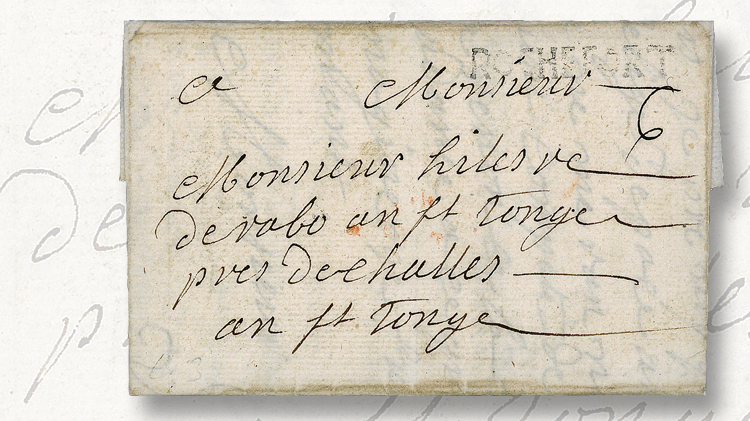 a Monsieur
Monsieur hilesve
derabo an ft Tonge
pres de challes
an ft Tonge